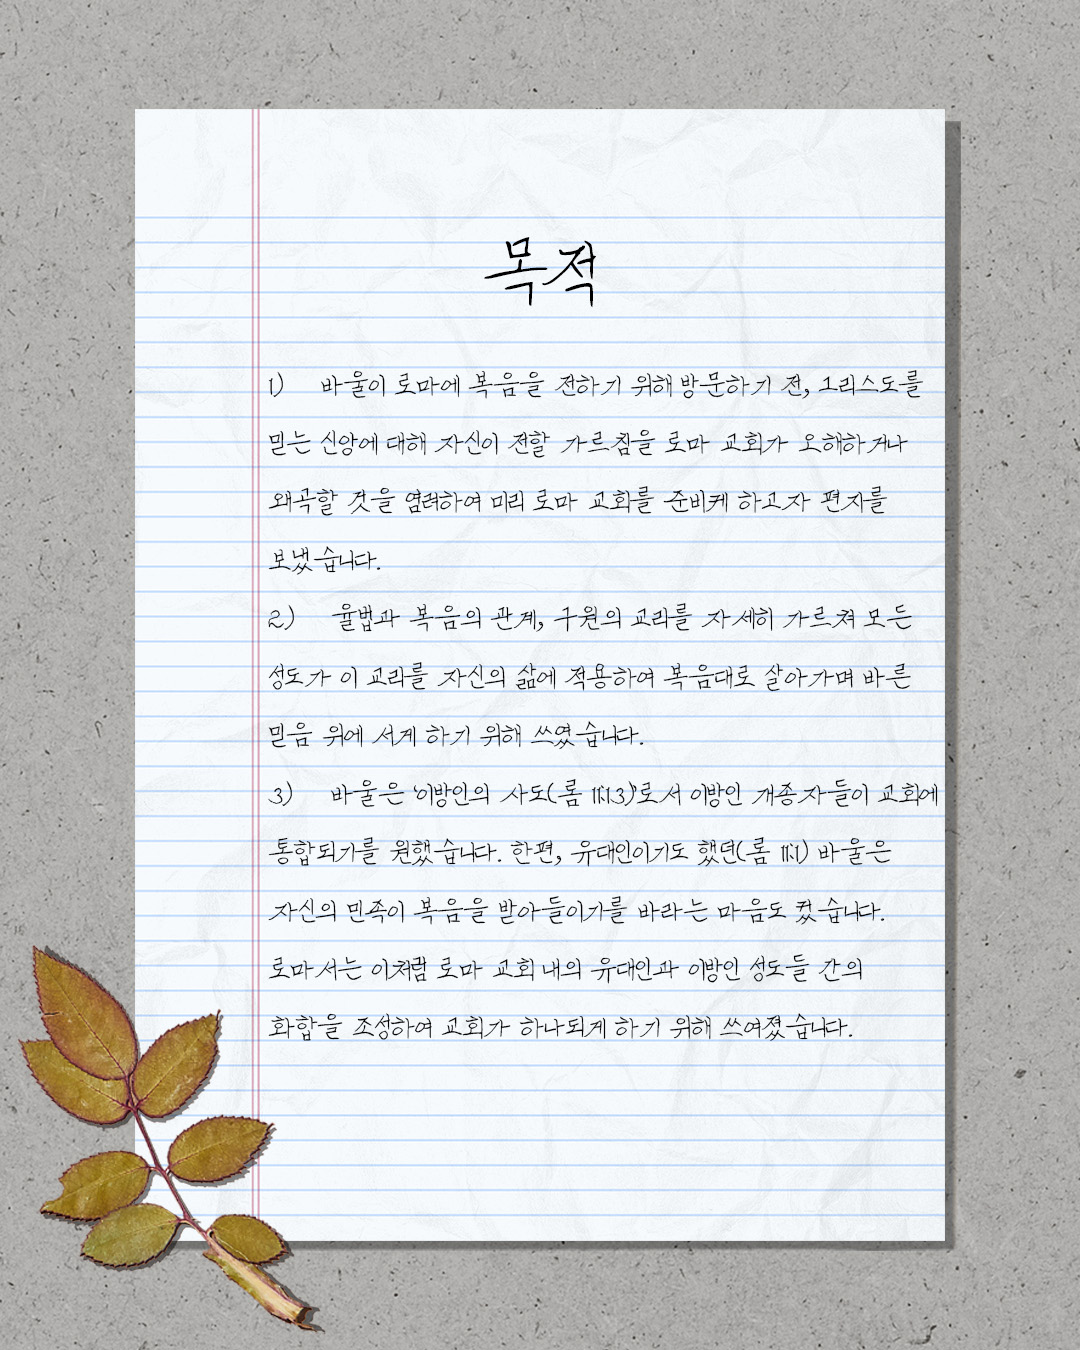 목적
1) 바울이 로마에 복음을 전하기 위해 방문하기 전, 그리스도를
믿는 신앙에 대해 자신이 전할 가르침을 로마 교회가 오해하거나
왜곡할 것을 염려하여 미리 로마 교회를 준비케 하고자 편지를
보냈습니다.
2) 율법과 복음의 관계, 구원의 교리를 자세히 가르쳐 모든
성도가 이 교리를 자신의 삶에 적용하여 복음대로 살아가며 바른
믿음 위에 서게 하기 위해 쓰였습니다.
3) 바울은 '이방인의 사도(롬 11:13)'로서 이방인 개종자들이 교회에
통합되기를 원했습니다. 한편, 유대인이기도 했던(롬 11:1) 바울은
자신의 민족이 복음을 받아들이기를 바라는 마음도 컸습니다.
로마서는 이처럼 로마 교회 내의 유대인과 이방인 성도들 간의
화합을 조성하여 교회가 하나되게 하기 위해 쓰여졌습니다.